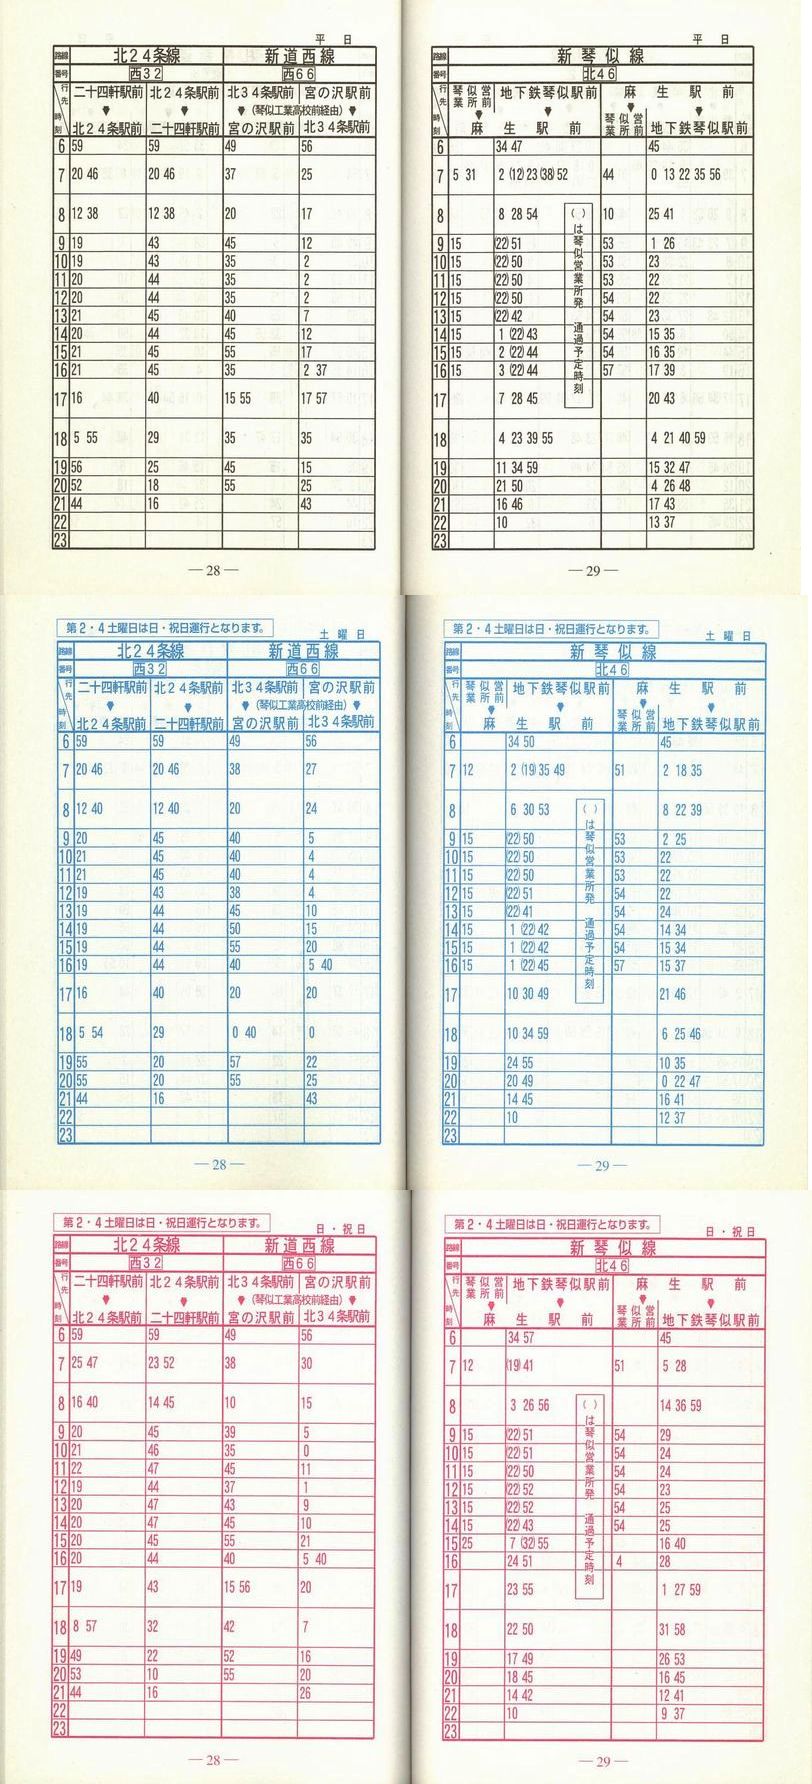 平 日
路線 北２４条線 新道西線
番号 西３２ 西６６
行先 二十四軒駅前 北２４条駅前 北３４条駅前 宮の沢駅前
▼ ▼ ▼（琴似工業高校前経由）▼
時刻 北２４条駅前 二十四軒駅前 宮の沢駅前 北３４条駅前
6 59 59 49 56
7 20 46 20 46 37 25
8 12 38 12 38 20 17
9 19 43 45 12
10 19 43 35 2
11 20 44 35 2
12 20 44 35 2
13 21 45 40 7
14 20 44 45 12
15 21 45 55 17
16 21 45 35 2 37
17 16 40 15 55 17 57
18 5 55 29 35 35
19 56 25 45 15
20 52 18 55 25
21 44 16 43
22
23
― 28 ―
平 日
路線 新琴似線
番号 北４６
行先 琴似営業所前 地下鉄琴似駅前 麻生駅前
▼ ▼
時刻 麻生駅前 琴似営業所前 地下鉄琴似駅前
6 34 47 45
7 5 31 2 (12) 23 (38) 52 44 0 13 22 35 56
8 8 28 54 10 25 41
9 15 (22) 51 53 1 26
10 15 (22) 50 53 23
11 15 (22) 50 53 22
12 15 (22) 50 54 22
13 15 (22) 42 54 23
14 15 1 (22) 43 54 15 35
15 15 2 (22) 44 54 16 35
16 15 3 (22) 44 57 17 39
17 7 28 45 20 43
18 4 23 39 55 4 21 40 59
19 11 34 59 15 32 47
20 21 50 4 26 48
21 16 46 17 43
22 10 13 37
23
（ ）は琴似営業所発 通過予定時刻
― 29 ―
第２・４土曜日は日・祝日運行となります。
土 曜 日
路線 北２４条線 新道西線
番号 西３２ 西６６
行先 二十四軒駅前 北２４条駅前 北３４条駅前 宮の沢駅前
▼ ▼ ▼（琴似工業高校前経由）▼
時刻 北２４条駅前 二十四軒駅前 宮の沢駅前 北３４条駅前
6 59 59 49 56
7 20 46 20 46 38 27
8 12 40 12 40 20 24
9 20 45 40 5
10 21 45 40 4
11 21 45 40 4
12 19 43 38 4
13 19 44 45 10
14 19 44 50 15
15 19 44 55 20
16 19 44 40 5 40
17 16 40 20 20
18 5 54 29 0 40 0
19 55 20 57 22
20 55 20 55 25
21 44 16 43
22
23
― 28 ―
第２・４土曜日は日・祝日運行となります。
土 曜 日
路線 新琴似線
番号 北４６
行先 琴似営業所前 地下鉄琴似駅前 麻生駅前
▼ ▼
時刻 麻生駅前 琴似営業所前 地下鉄琴似駅前
6 34 50 45
7 12 2 (19) 35 49 51 2 18 35
8 6 30 53 8 22 39
9 15 (22) 50 53 2 25
10 15 (22) 50 53 22
11 15 (22) 50 53 22
12 15 (22) 51 54 22
13 15 (22) 41 54 24
14 15 1 (22) 42 54 14 34
15 15 1 (22) 42 54 15 34
16 15 1 (22) 45 57 15 37
17 10 30 49 21 46
18 10 34 59 6 25 46
19 24 55 10 35
20 20 49 0 22 47
21 14 45 16 41
22 10 12 37
23
（ ）は琴似営業所発 通過予定時刻
― 29 ―
第２・４土曜日は日・祝日運行となります。
日・祝日
路線 北２４条線 新道西線
番号 西３２ 西６６
行先 二十四軒駅前 北２４条駅前 北３４条駅前 宮の沢駅前
▼ ▼ ▼（琴似工業高校前経由）▼
時刻 北２４条駅前 二十四軒駅前 宮の沢駅前 北３４条駅前
6 59 59 49 56
7 25 47 23 52 38 30
8 16 40 14 45 10 15
9 20 45 39 5
10 21 46 35 0
11 22 47 45 11
12 19 44 37 1
13 20 47 43 9
14 20 47 45 10
15 20 45 55 21
16 20 44 40 5 40
17 19 43 15 56 20
18 8 57 32 42 7
19 49 22 52 16
20 53 10 55 20
21 44 16 26
22
23
― 28 ―
第２・４土曜日は日・祝日運行となります。
日・祝日
路線 新琴似線
番号 北４６
行先 琴似営業所前 地下鉄琴似駅前 麻生駅前
▼ ▼
時刻 麻生駅前 琴似営業所前 地下鉄琴似駅前
6 34 57 45
7 12 (19) 41 51 5 28
8 3 26 56 14 36 59
9 15 (22) 51 54 29
10 15 (22) 51 54 24
11 15 (22) 50 54 24
12 15 (22) 52 54 23
13 15 (22) 52 54 25
14 15 (22) 43 54 25
15 25 7 (32) 55 16 40
16 24 51 4 28
17 23 55 1 27 59
18 22 50 31 58
19 17 49 26 53
20 18 45 16 45
21 14 42 12 41
22 10 9 37
23
（ ）は琴似営業所発 通過予定時刻
― 29 ―